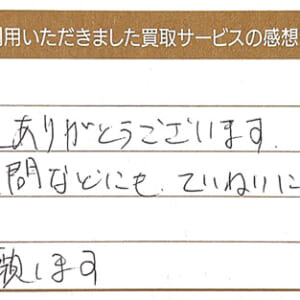 用いただきました買取サービスの感想
ありがとうございます.
問などにも、ていねいに
願します